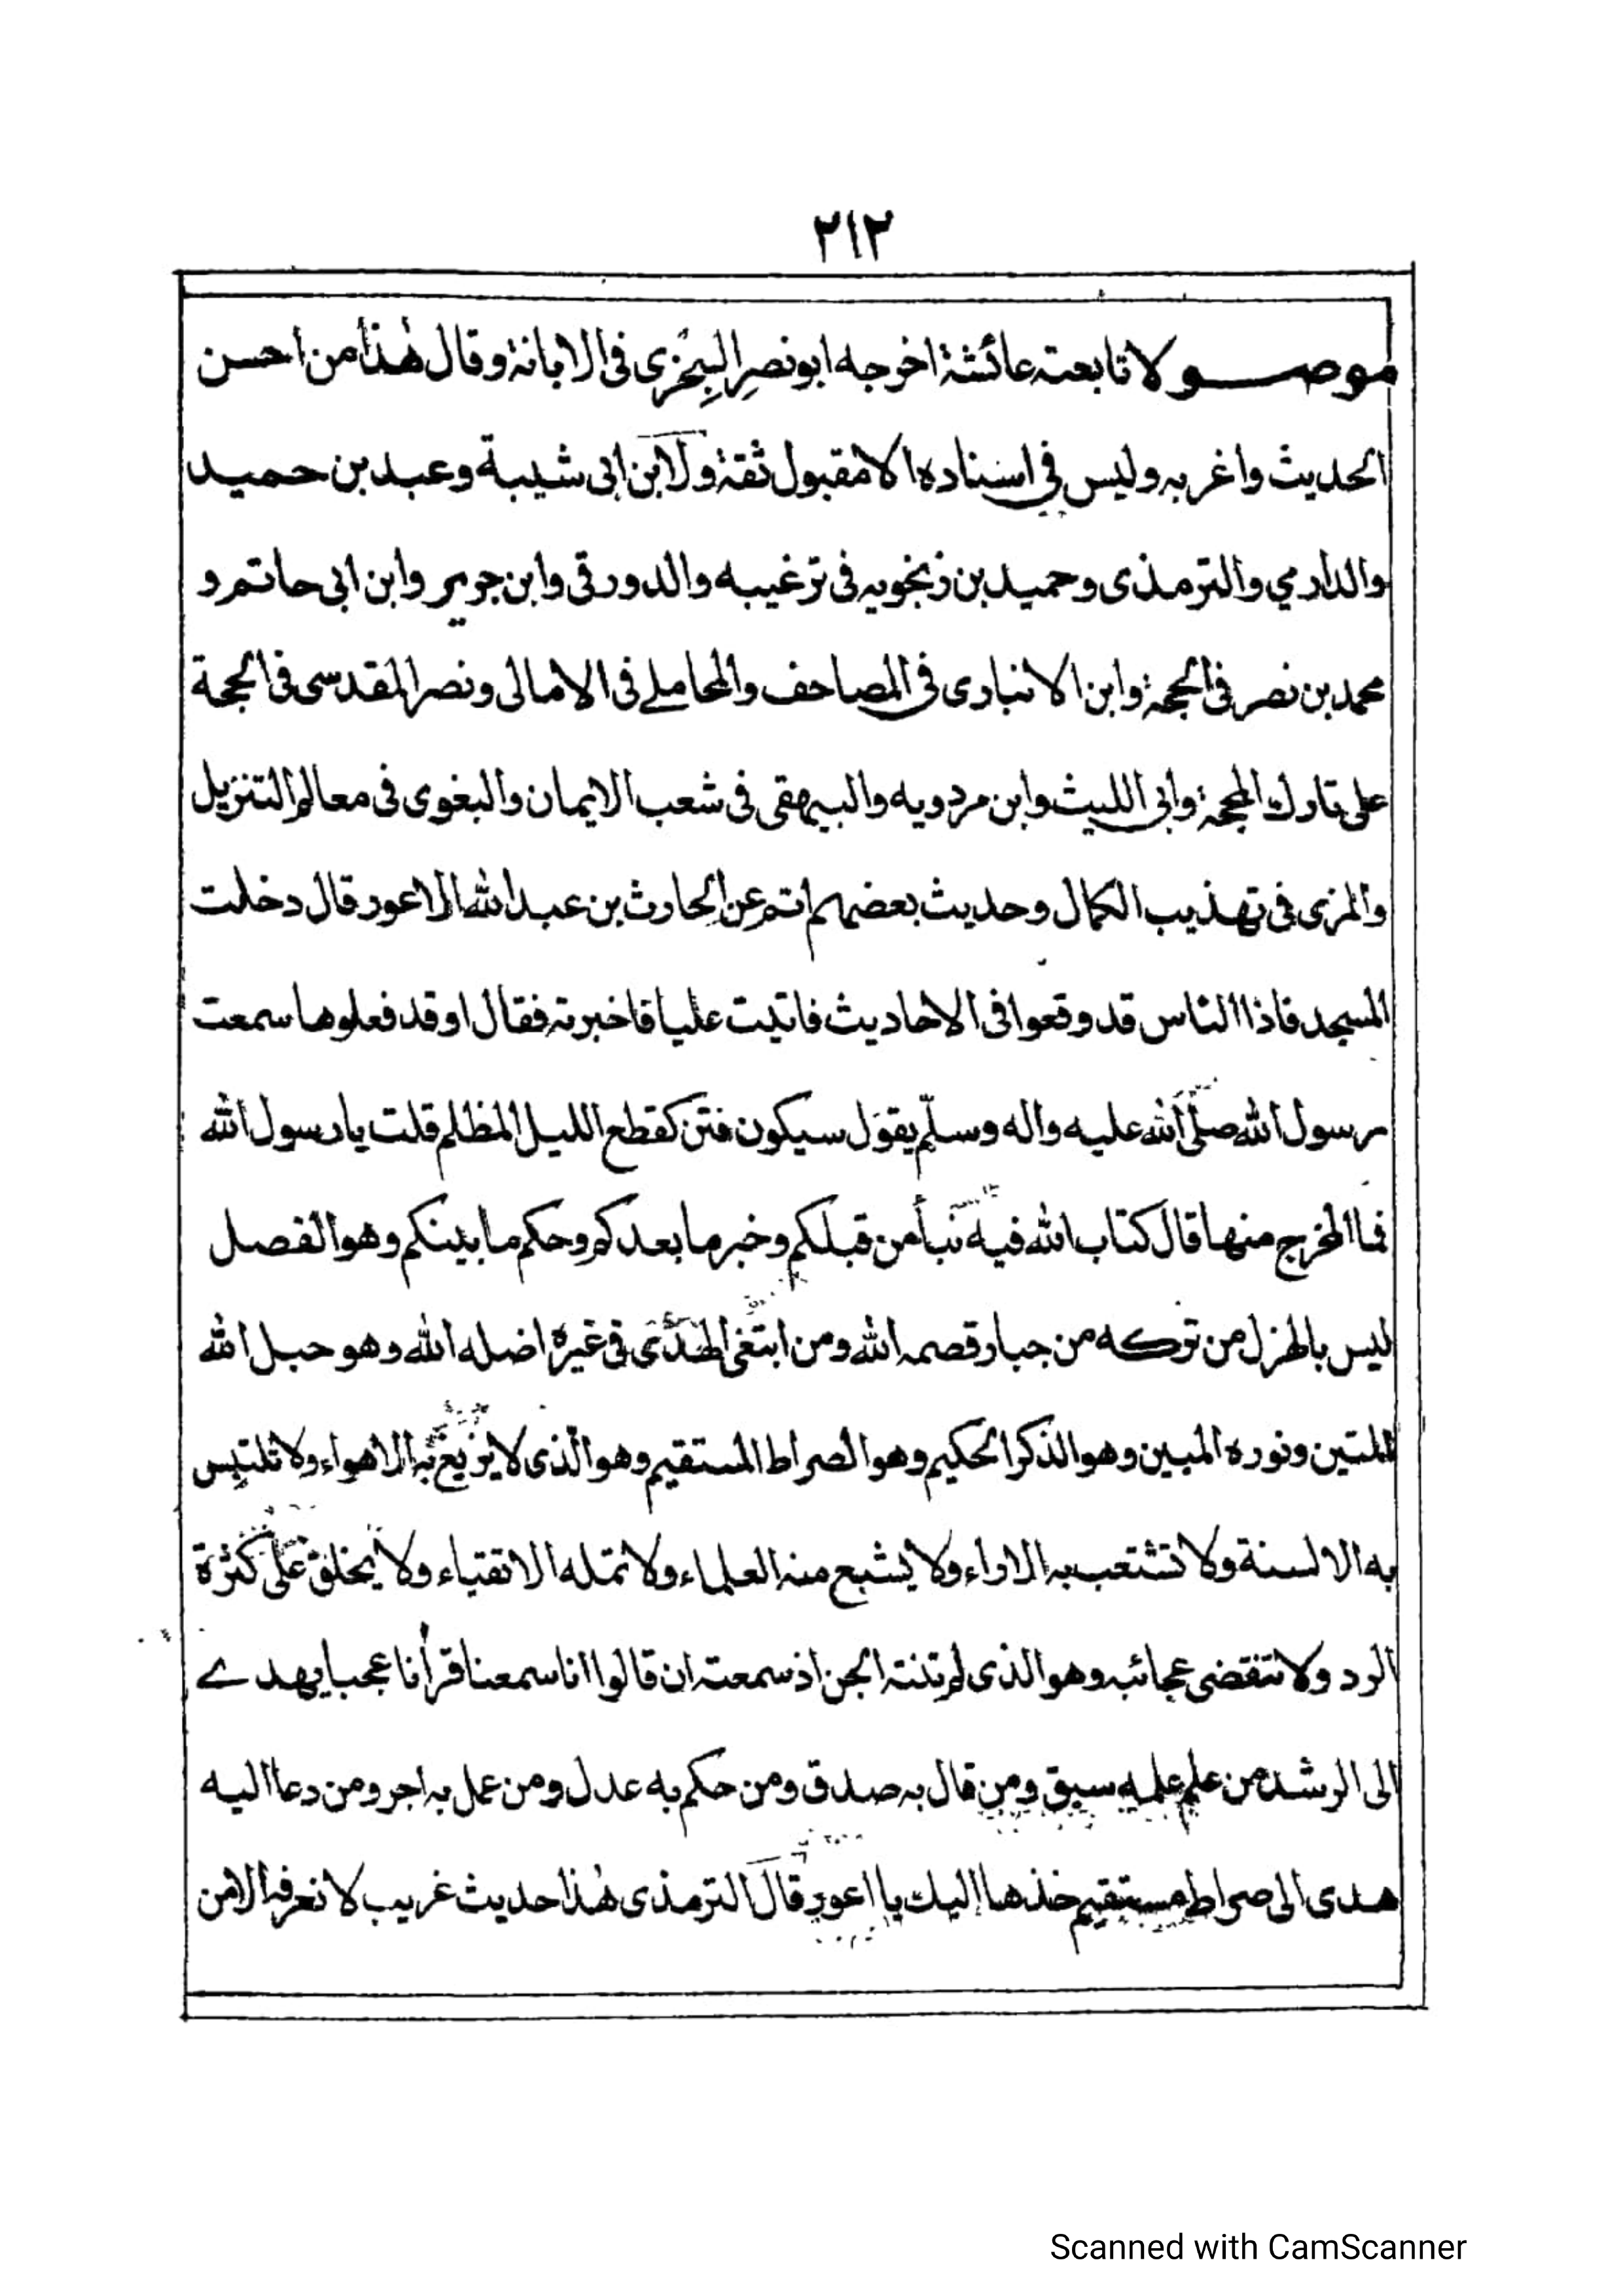 ٢١٢
موصولا تابعته عائشة اخرجه ابو نصر السجزى فى الابانة وقال هذا من احسن
الحديث واغربه وليس فى اسناده الا مقبول ثقة ولابن ابى شيبة وعبد بن حميد
والدارمي والترمذى وحميد بن زنجويه فى ترغيبه والدورقى وابن جرير وابن ابى حاتم و
محمد بن نصر فى الحجة وابن الانبارى فى المصاحف والمحاملے فى الامالى ونصر المقدسى فى الحجة
على تارك المحجة وابى الليث وابن مردويه والبيهقى فى شعب الايمان والبغوى فى معالم التنزيل
والمزى فى تهذيب الكمال وحديث بعضهم اتم عن الحارث بن عبد الله الاعور قال دخلت
المسجد فاذا الناس قد وقعوا فى الاحاديث فاتيت عليا فاخبرته فقال او قد فعلوها سمعت
رسول الله صلى الله عليه واله وسلم يقول سيكون فتن كقطع الليل المظلم قلت يا رسول الله
فما المخرج منها قال كتاب الله فيه نبأ من قبلكم وخبر ما بعدكم وحكم ما بينكم وهو الفصل
ليس بالهزل من تركه من جبار قصمه الله ومن ابتغى الهدى فى غيره اضله الله وهو حبل الله
المتين ونوره المبين وهو الذكر الحكيم وهو الصراط المستقيم وهو الذى لا يزيغ به الاهواء ولا تلتبس
به الالسنة ولا تشتعب به الاراء ولا يشبع منه العلماء ولا تمله الاتقياء ولا يخلق على كثرة
الرد ولا تنقضى عجائبه وهو الذى لم تنته الجن اذ سمعته ان قالوا انا سمعنا قرأنا عجبا يهدے
الى الرشد من علم علمه سبق ومن قال به صدق ومن حكم به عدل ومن عمل به اجر ومن دعا اليه
هدى الى صراط مستقيم خذها اليك يا اعور قال الترمذى هذا حديث غريب لا نعرفه الا من
Scanned with CamScanner